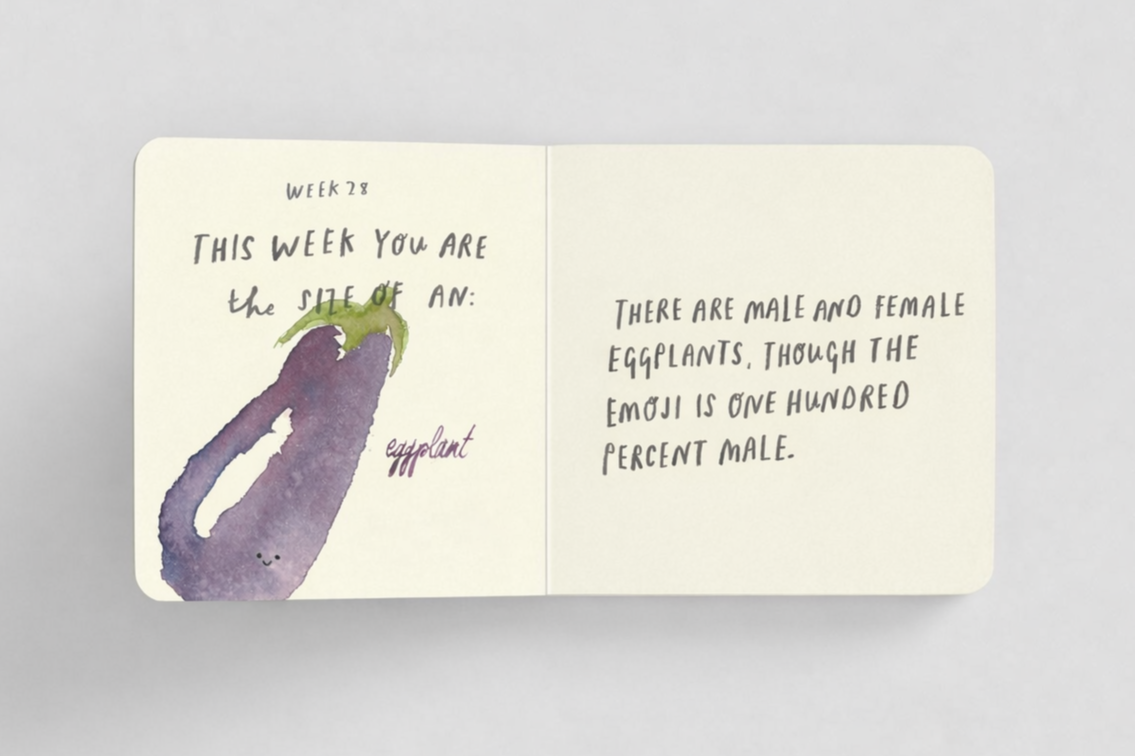 WEEK 28
THIS WEEK YOU ARE
the SIZE OF AN:
eggplant
THERE ARE MALE AND FEMALE
EGGPLANTS, THOUGH THE
EMOJI IS ONE HUNDRED
PERCENT MALE.